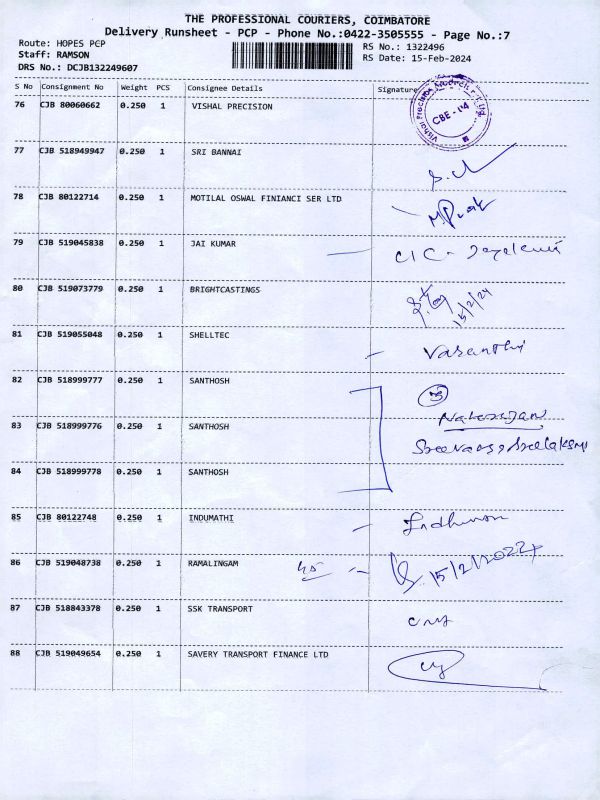 THE PROFESSIONAL COURIERS, COIMBATORE
Delivery Runsheet - PCP - Phone No.:0422-3505555 - Page No.:7
Route: HOPES PCP
RS No.: 1322496
Staff: RAMSON
RS Date: 15-Feb-2024
DRS No.: DCJB132249607
S No Consignment No Weight PCS Consignee Details Signature
76 CJB 80060662 0.250 1 VISHAL PRECISION
CBE - 04
77 CJB 518949947 0.250 1 SRI BANNAI
78 CJB 80122714 0.250 1 MOTILAL OSWAL FINIANCI SER LTD
79 CJB 519045838 0.250 1 JAI KUMAR
80 CJB 519073779 0.250 1 BRIGHTCASTINGS 15/2/24
81 CJB 519055048 0.250 1 SHELLTEC Vasanthi
82 CJB 518999777 0.250 1 SANTHOSH
83 CJB 518999776 0.250 1 SANTHOSH Natarajan
84 CJB 518999778 0.250 1 SANTHOSH
85 CJB 80122748 0.250 1 INDUMATHI
86 CJB 519048738 0.250 1 RAMALINGAM 45
87 CJB 518843378 0.250 1 SSK TRANSPORT
88 CJB 519049654 0.250 1 SAVERY TRANSPORT FINANCE LTD